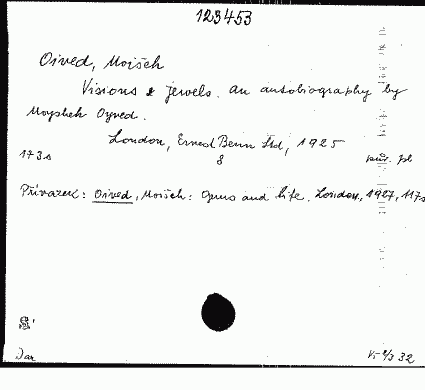 123453
Oived, Moišeh
Visions & jewels. An autobiography by
Moysheh Oyved.
London, Ernest Benn Ltd, 1925
8
173 s
pův. pl
Přívazek: Oived, Moišeh: Gems and life. London, 1927, 117s
Dar